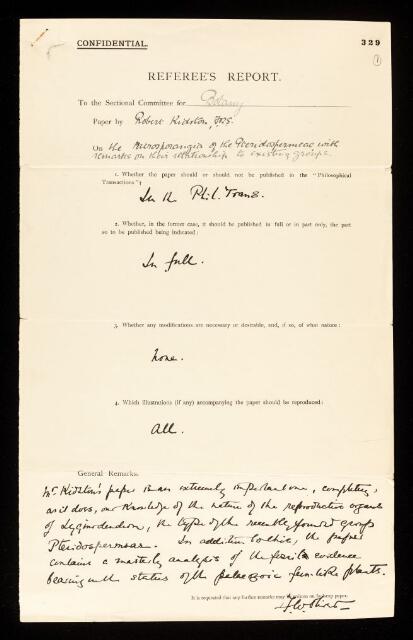 CONFIDENTIAL.
329
1
REFEREE'S REPORT.
To the Sectional Committee for Botany
Paper by Robert Kidston, FRS.
On the Microsporangia of the Pteridospermeae with
remarks on their relationship to existing groups.
1. Whether the paper should or should not be published in the "Philosophical
Transactions":
In the Phil. Trans.
2. Whether, in the former case, it should be published in full or in part only, the part
so to be published being indicated:
In full.
3. Whether any modifications are necessary or desirable, and, if so, of what nature:
None.
4. Which illustrations (if any) accompanying the paper should be reproduced:
All.
General Remarks.
Mr. Kidston's paper is an extremely important one, completing,
as it does, our knowledge of the nature of the reproductive organs
of Lyginodendron, the type of the recently founded group
Pteridospermeae. In addition to this, the paper
contains a masterly analysis of the fossil evidence
bearing on the status of the palaeozoic fern-like plants.
It is requested that any further remarks may be written on